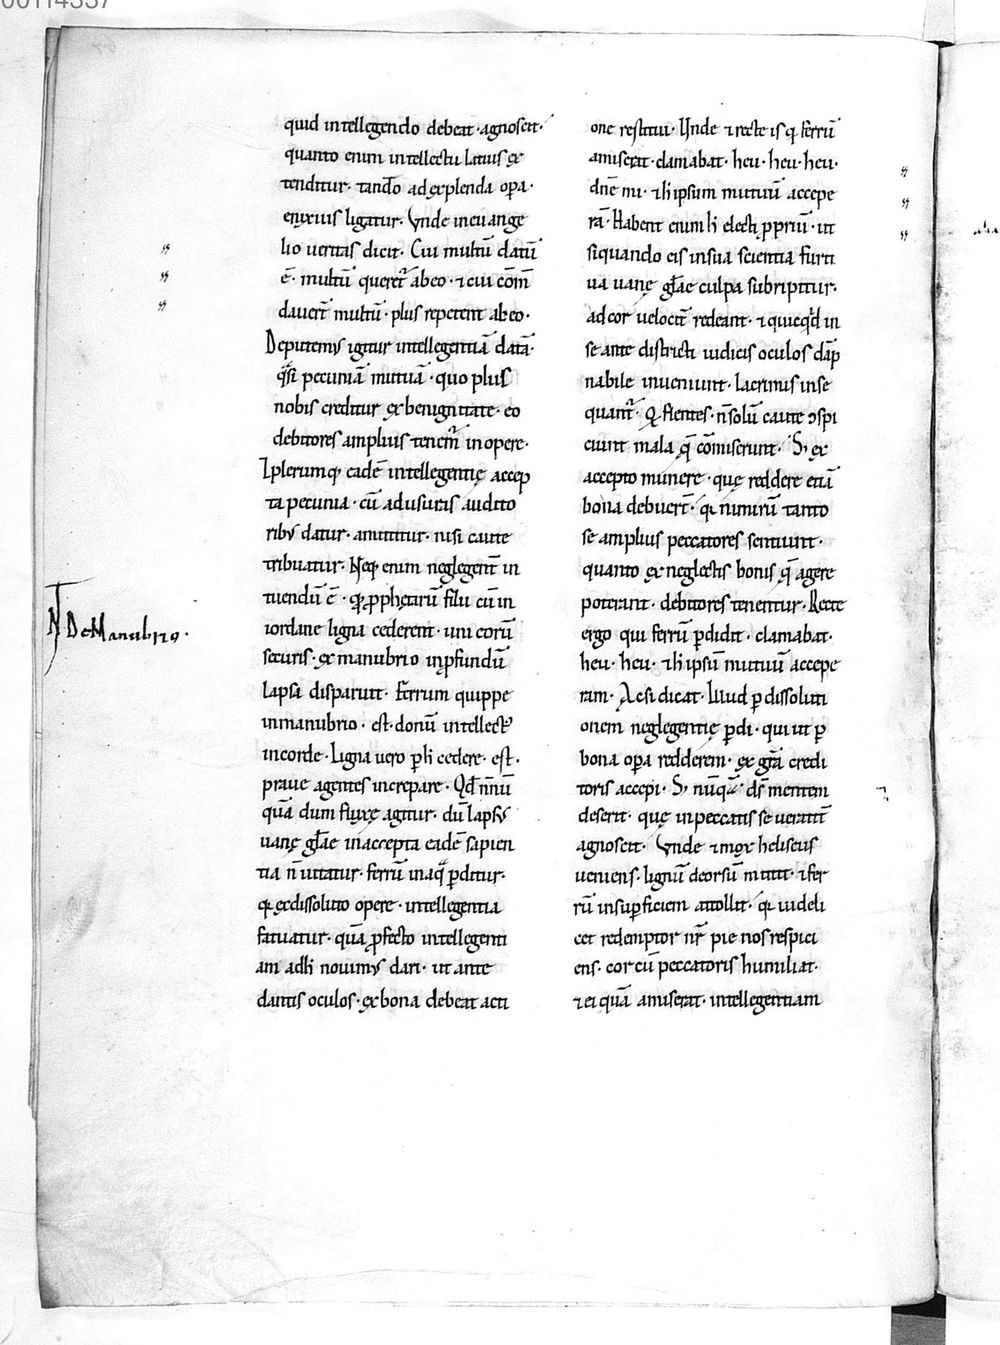 00114337
quid intellegendo debeat · agnoscit ·
quanto enim intellectu latius ex
tenditur · tanto ad explenda opa ·
enixius ligatur · Vnde in euange
lio ueritas dicit · Cui multū datū
ē · multū queret᷑ ab eo · ⁊ cui cōm̄
dauer̄t multū · plus repetent ab eo ·
Deputemꝰ igitur intellegentiā datā ·
q̄si pecuniā mutuā · quo plus
nobis creditur ex benignitate · eo
debitores amplius tenem᷑ in opere ·
I plerumq; eadē intellegentię accep
ta pecunia · cū ad usuris auditto
ribꝰ datur · amittitur · nisi caute
tribuatur · Neq; enim neglegent̄ in
tuendū ē · qd̄ ꝓphetarū filii cū in
iordane ligna cederent · uni eorū
securis · ex manubrio in ꝓfundū
lapsa disparuit · Ferrum quippe
in manubrio · est · donū intellectꝰ
in corde · Ligna uero ꝑ h̄ cedere · est ·
praue agentes increpare · Qd̄ n̄nū
quā dum fluxe agitur · dū lapsꝰ
uanę gl̄ae in accepta eadē sapien
tia n̄ uitatur · ferrū in aq̄ ꝑditur ·
qꝛ ex dissoluto opere · intellegentia
fatuatur · quā ꝓfecto intellegenti
am ad h̄ nouimꝰ dari · ut ante
dantis oculos · ex bona debeat acti
N̄ De Manubrio ·
one restitui · Unde ⁊ recte is q̇ ferrū
amiserat · clamabat · heu · heu · heu ·
dn̄e mi · ⁊ h̄ ipsum mutuū accepe
rā · Habent enim h̄ electi ꝓpriū · ut
si quando eis in sua scientia furti
ua uanę gl̄ae culpa subripitur ·
ad cor uelocit̄ redeant · ⁊ quicq̇d in
se ante districti iudicis oculos dāp
nabile inueniunt · lacrimis inse
quant᷑ · Q flentes · n̄ solū caute ɔspi
ciunt mala q̄ cōmiserunt · S; ex
accepto munere · quę reddere etiā
bona debuer̄t · qꝛ nimirū tanto
se amplius peccatores sentiunt ·
quanto ex neglectis bonis q̄ agere
poterant · debitores tenentur · Recte
ergo qui ferrū ꝑdidit · clamabat ·
heu · heu · ⁊ h̄ ipsū mutuū accepe
ram · Ac si dicat · Illud ꝑ dissoluti
onem neglegentię ꝑdi · qui ut ꝑ
bona opa redderem · ex gr̄a credi
toris accepi · S; nūquā ds̄ mentem
deserit · quę in peccatis se ueracit̄
agnoscit · Vnde ⁊ mox heliseus
ueniens · lignū deorsū mittit · ⁊ fer
rū in suꝑficiem attollit · qꝛ uideli
cet redemptor nr̄ pie nos respici
ens · cor cū peccatoris humiliat ·
⁊ ei quā amiserat · intellegentiam